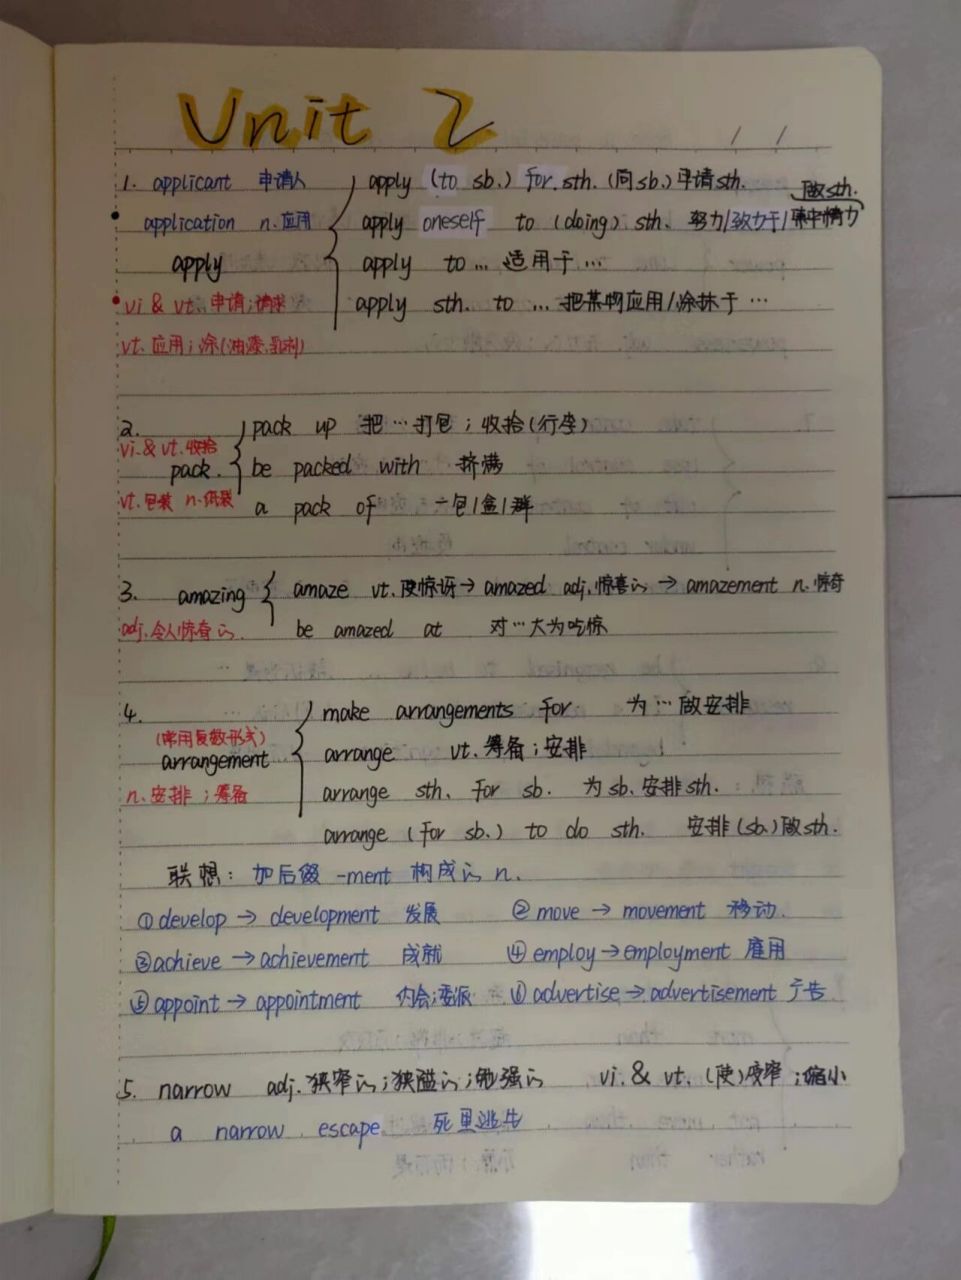 Unit 2
/ /
1. applicant 申请人
apply (to sb.) for sth. (向sb.)申请sth.
application n. 应用
apply oneself to (doing) sth. 努力/致力于/集中精力做sth.
apply
apply to … 适用于 …
vi & vt. 申请;请求
apply sth. to … 把某物应用/涂抹于 …
vt. 应用;涂(油漆、乳剂)
2.
pack up 把…打包;收拾(行李)
vi. & vt. 收拾
pack.
be packed with 挤满
vt. 包装 n. 纸袋
a pack of 一包/盒/群
3. amazing
amaze vt. 使惊讶→ amazed adj. 惊喜的 → amazement n. 惊奇
adj. 令人惊奇的.
be amazed at 对…大为吃惊
4.
make arrangements for 为…做安排
(常用复数形式)
arrangement
arrange vt. 筹备;安排
n. 安排;筹备
arrange sth. for sb. 为sb. 安排sth.
arrange (for sb.) to do sth. 安排(sb.)做sth.
联想: 加后缀 -ment 构成的 n.
①develop → development 发展 ② move → movement 移动.
③achieve →achievement 成就 ④ employ→employment 雇用
⑤appoint → appointment 约会;委派 ⑥ advertise→advertisement 广告
5. narrow adj. 狭窄的;狭隘的;勉强的 vi. & vt. (使)变窄;缩小
a narrow escape 死里逃生